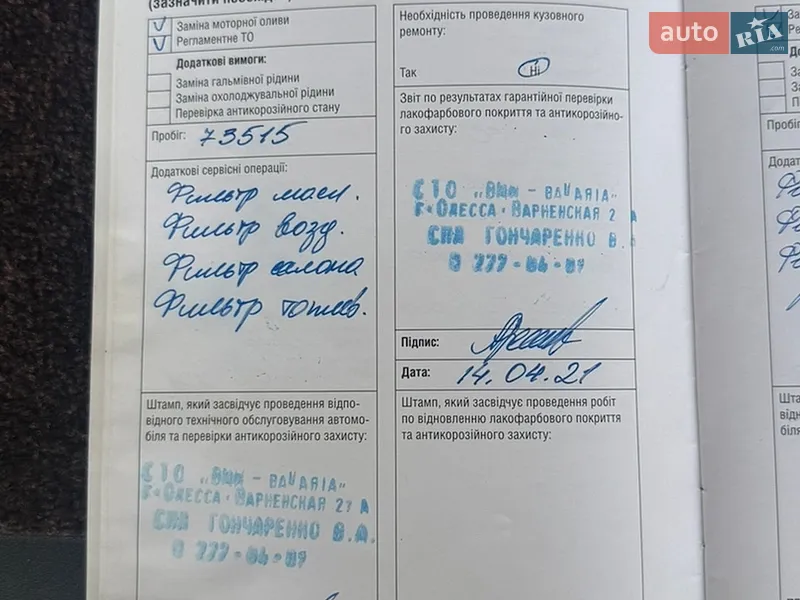 ✓ Заміна моторної оливи
✓ Регламентне ТО
Додаткові вимоги:
Заміна гальмівної рідини
Заміна охолоджувальної рідини
Перевірка антикорозійного стану
Пробіг: 73515
Додаткові сервісні операції:
Фильтр масл.
Фильтр возд.
Фильтр салона
Фильтр топлив.
Штамп, який засвідчує проведення відпо-
відного технічного обслуговування автомо-
біля та перевірки антикорозійного захисту:
СТО „ВММ - ВАVARIA"
Г•ОДЕССА•ВАРНЕНСКАЯ 27 А
СПД ГОНЧАРЕНКО В.А.
Необхідність проведення кузовного
ремонту:
Так Ні
Звіт по результатах гарантійної перевірки
лакофарбового покриття та антикорозійно-
го захисту:
СТО „ВММ - ВАVARIA"
Г•ОДЕССА•ВАРНЕНСКАЯ 2 А
СПД ГОНЧАРЕНКО В.
Підпис:
Дата: 14.04.21
Штамп, який засвідчує проведення робіт
по відновленню лакофарбового покриття
та антикорозійного захисту:
auto RIA .com